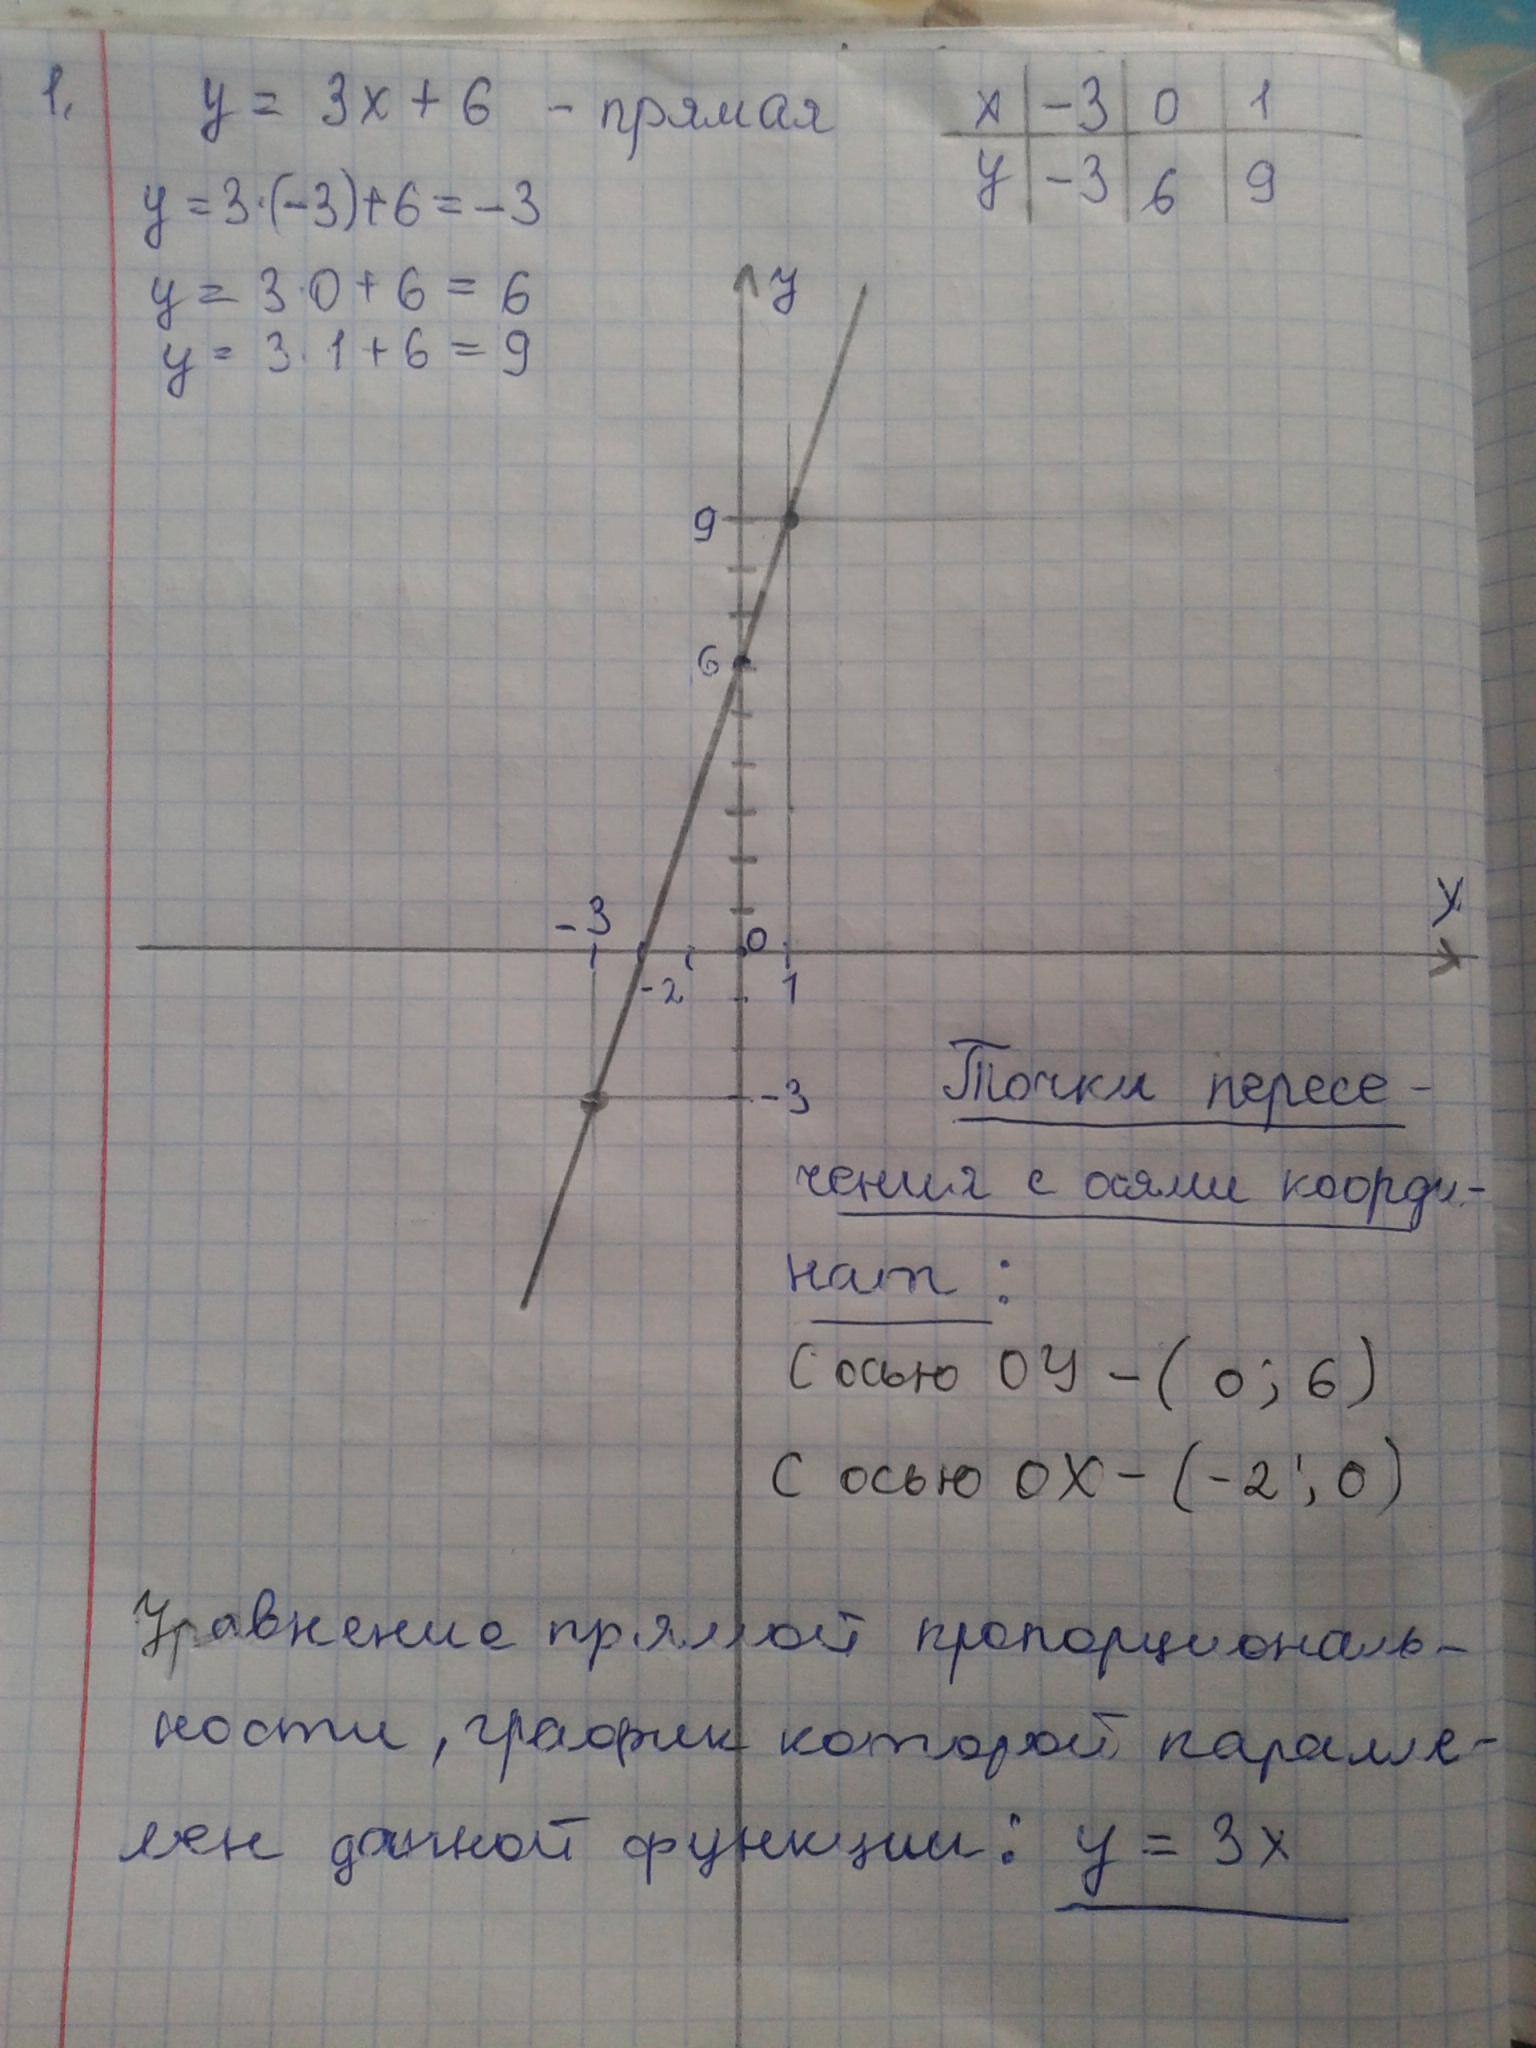 1. y = 3x + 6 - прямая
x -3 0 1
y -3 6 9
y = 3·(-3)+6 = -3
y = 3·0 + 6 = 6
y = 3·1 + 6 = 9
y
9
6
-3
0
x
-2
1
-3
Точки пересе-
чения с осями коорди-
нат :
С осью OY - ( 0; 6 )
С осью OX - (-2; 0)
Уравнение прямой пропорциональ-
ности, график которой паралле-
лен данной функции: y = 3x